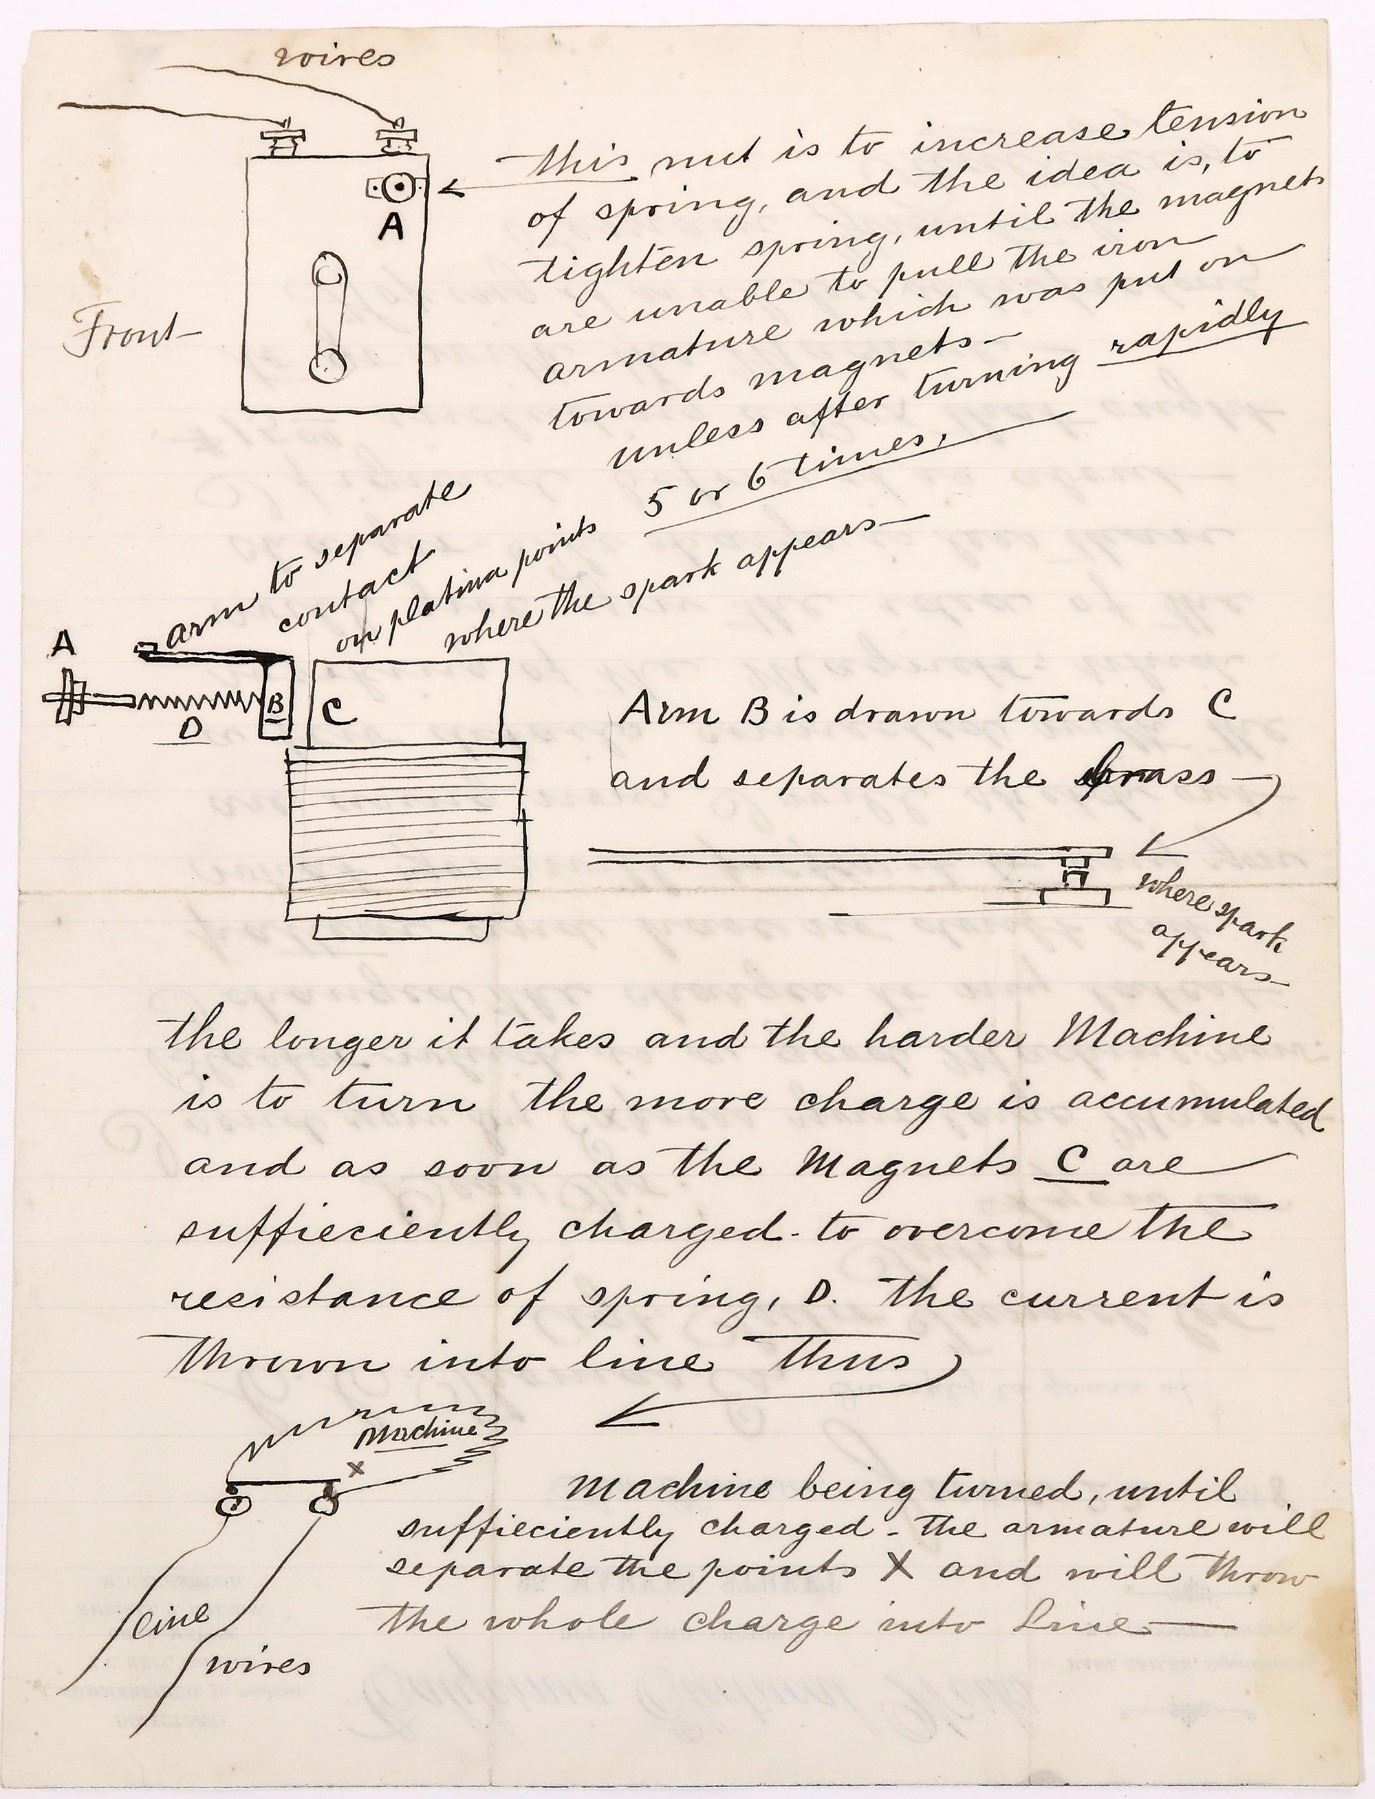 wires
this nut is to increase tension
of spring, and the idea is, to
tighten spring, until the magnets
are unable to pull the iron
armature which was put on
towards magnets—
unless after turning rapidly
5 or 6 times.
A
Front
arm to separate
contact
on platina points
where the spark appears—
A
D
B
C
Arm B is drawn towards C
and separates the brass
where spark
appears
the longer it takes and the harder Machine
is to turn the more charge is accumulated
and as soon as the Magnets C are
suffieciently charged - to overcome the
resistance of spring, D. the current is
thrown into line thus
Machine
X
Machine being turned, until
suffieciently charged - the armature will
separate the points X and will throw
the whole charge into Line—
Line
wires